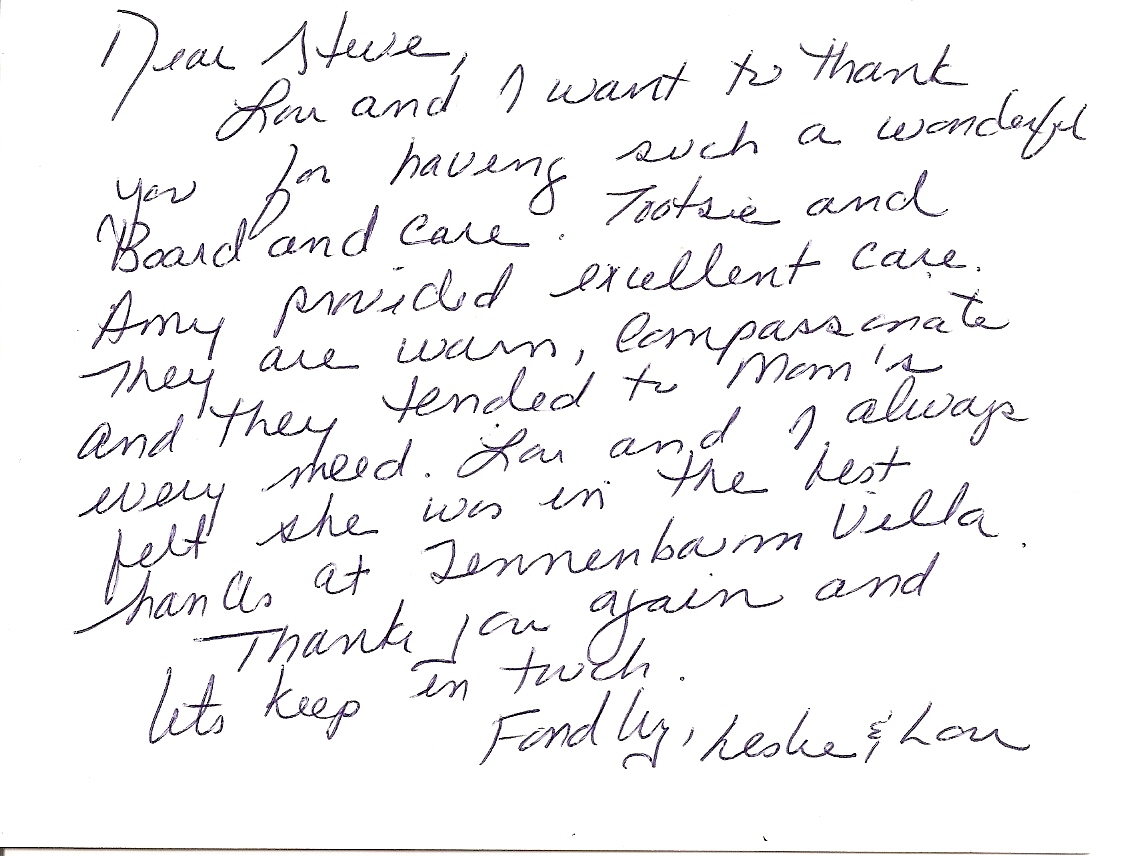 Dear Steve,
Lou and I want to thank
you for having such a wonderful
Board and Care. Tootsie and
Amy provided excellent care.
They are warm, compassionate
and they tended to Mom's
every need. Lou and I always
felt she was in the best
hands at Tennenbaum Villa.
Thank you again and
lets keep in touch.
Fondly, Leslie & Lou